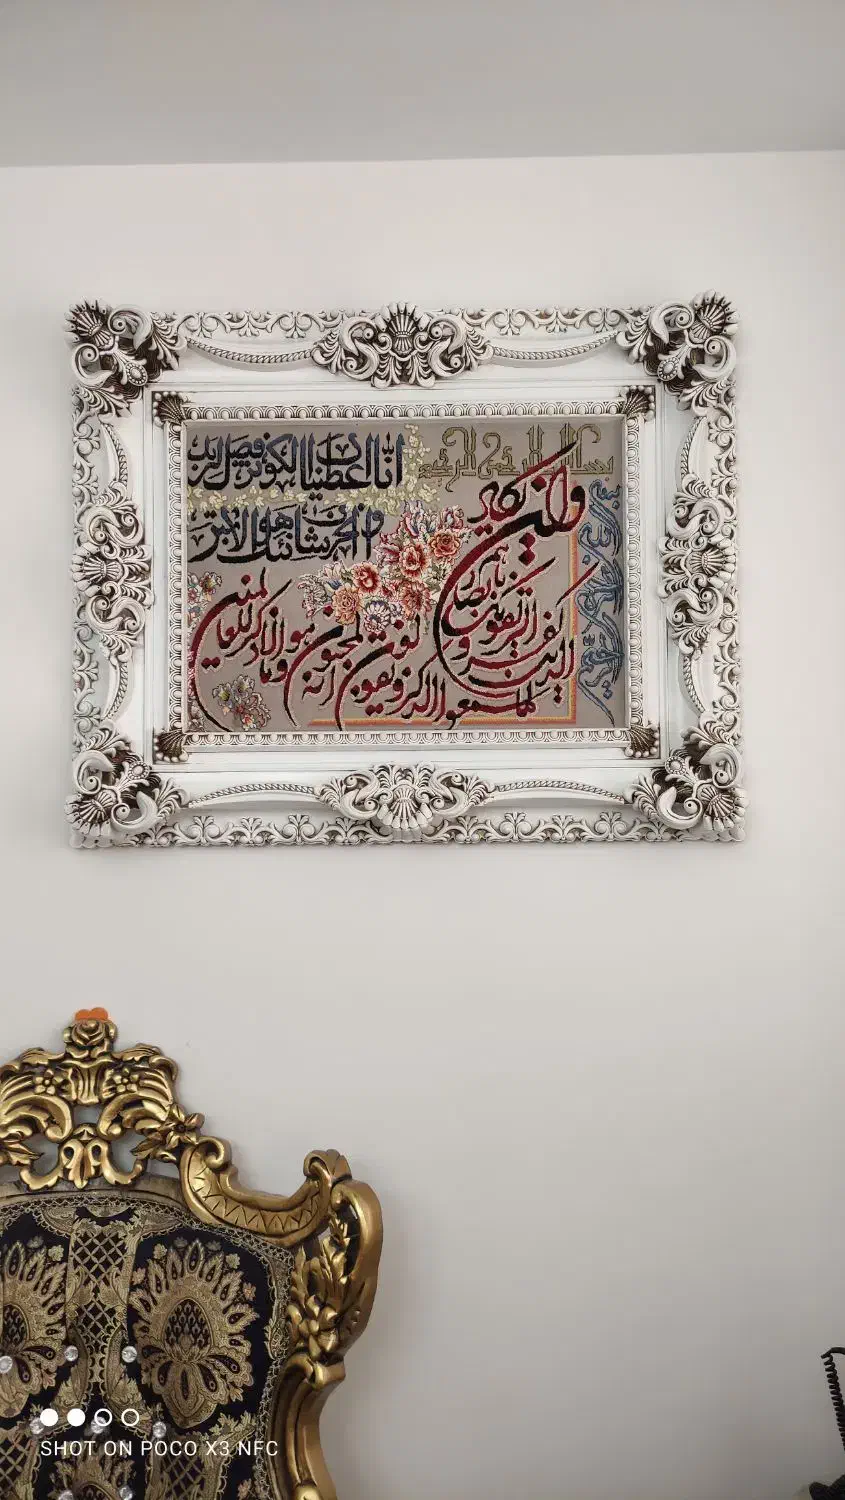 بسم الله الرحمن الرحیم
انا اعطیناک الکوثر فصل لربک
وانحر ان شانئک هو الابتر
بسم الله الرحمن الرحیم
وان یکاد
الذین کفروا لیزلقونک بابصارهم
لما سمعوا الذکر ویقولون انه لمجنون
وما هو الا ذکر للعالمین
SHOT ON POCO X3 NFC